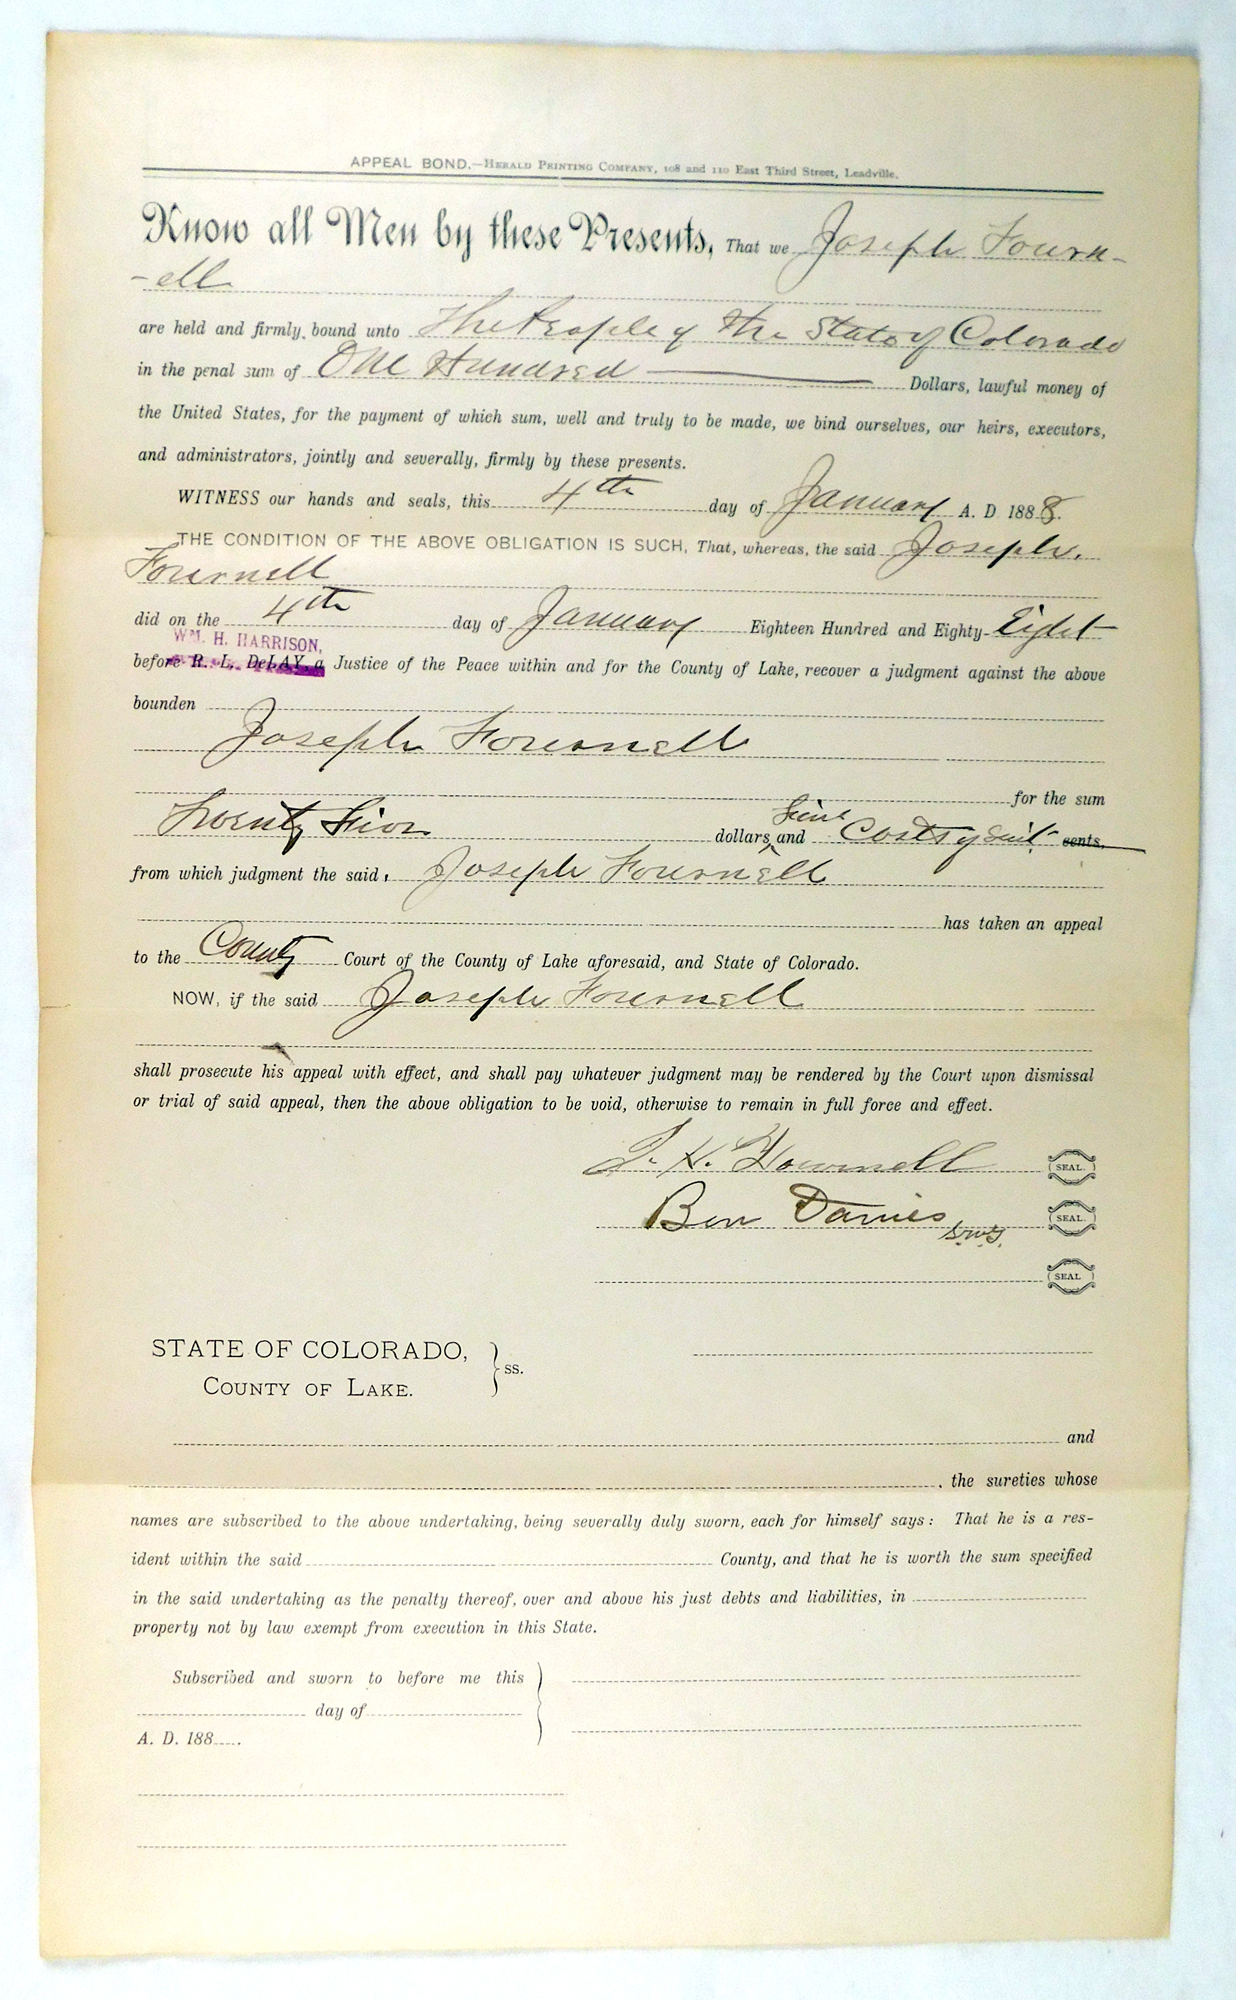 APPEAL BOND.—HERALD PRINTING COMPANY, 108 and 110 East Third Street, Leadville.
Know all Men by these Presents, That we Joseph Fourn-
-ell
are held and firmly bound unto The People of the State of Colorado
in the penal sum of One Hundred Dollars, lawful money of
the United States, for the payment of which sum, well and truly to be made, we bind ourselves, our heirs, executors,
and administrators, jointly and severally, firmly by these presents.
WITNESS our hands and seals, this 4th day of January A. D 1888.
THE CONDITION OF THE ABOVE OBLIGATION IS SUCH, That, whereas, the said Joseph
Fournell
did on the 4th day of January Eighteen Hundred and Eighty-Eight
WM. H. HARRISON,
before R. L. DeLAY, a Justice of the Peace within and for the County of Lake, recover a judgment against the above
bounden
Joseph Fournell
for the sum
Twenty Five dollars, fine and Costs of suit cents,
from which judgment the said, Joseph Fournell
has taken an appeal
to the County Court of the County of Lake aforesaid, and State of Colorado.
NOW, if the said Joseph Fournell
shall prosecute his appeal with effect, and shall pay whatever judgment may be rendered by the Court upon dismissal
or trial of said appeal, then the above obligation to be void, otherwise to remain in full force and effect.
(SEAL.)
Ben Davies (SEAL.)
(SEAL)
STATE OF COLORADO,
COUNTY OF LAKE. } ss.
and
, the sureties whose
names are subscribed to the above undertaking, being severally duly sworn, each for himself says: That he is a res-
ident within the said County, and that he is worth the sum specified
in the said undertaking as the penalty thereof, over and above his just debts and liabilities, in
property not by law exempt from execution in this State.
Subscribed and sworn to before me this
day of
A. D. 188